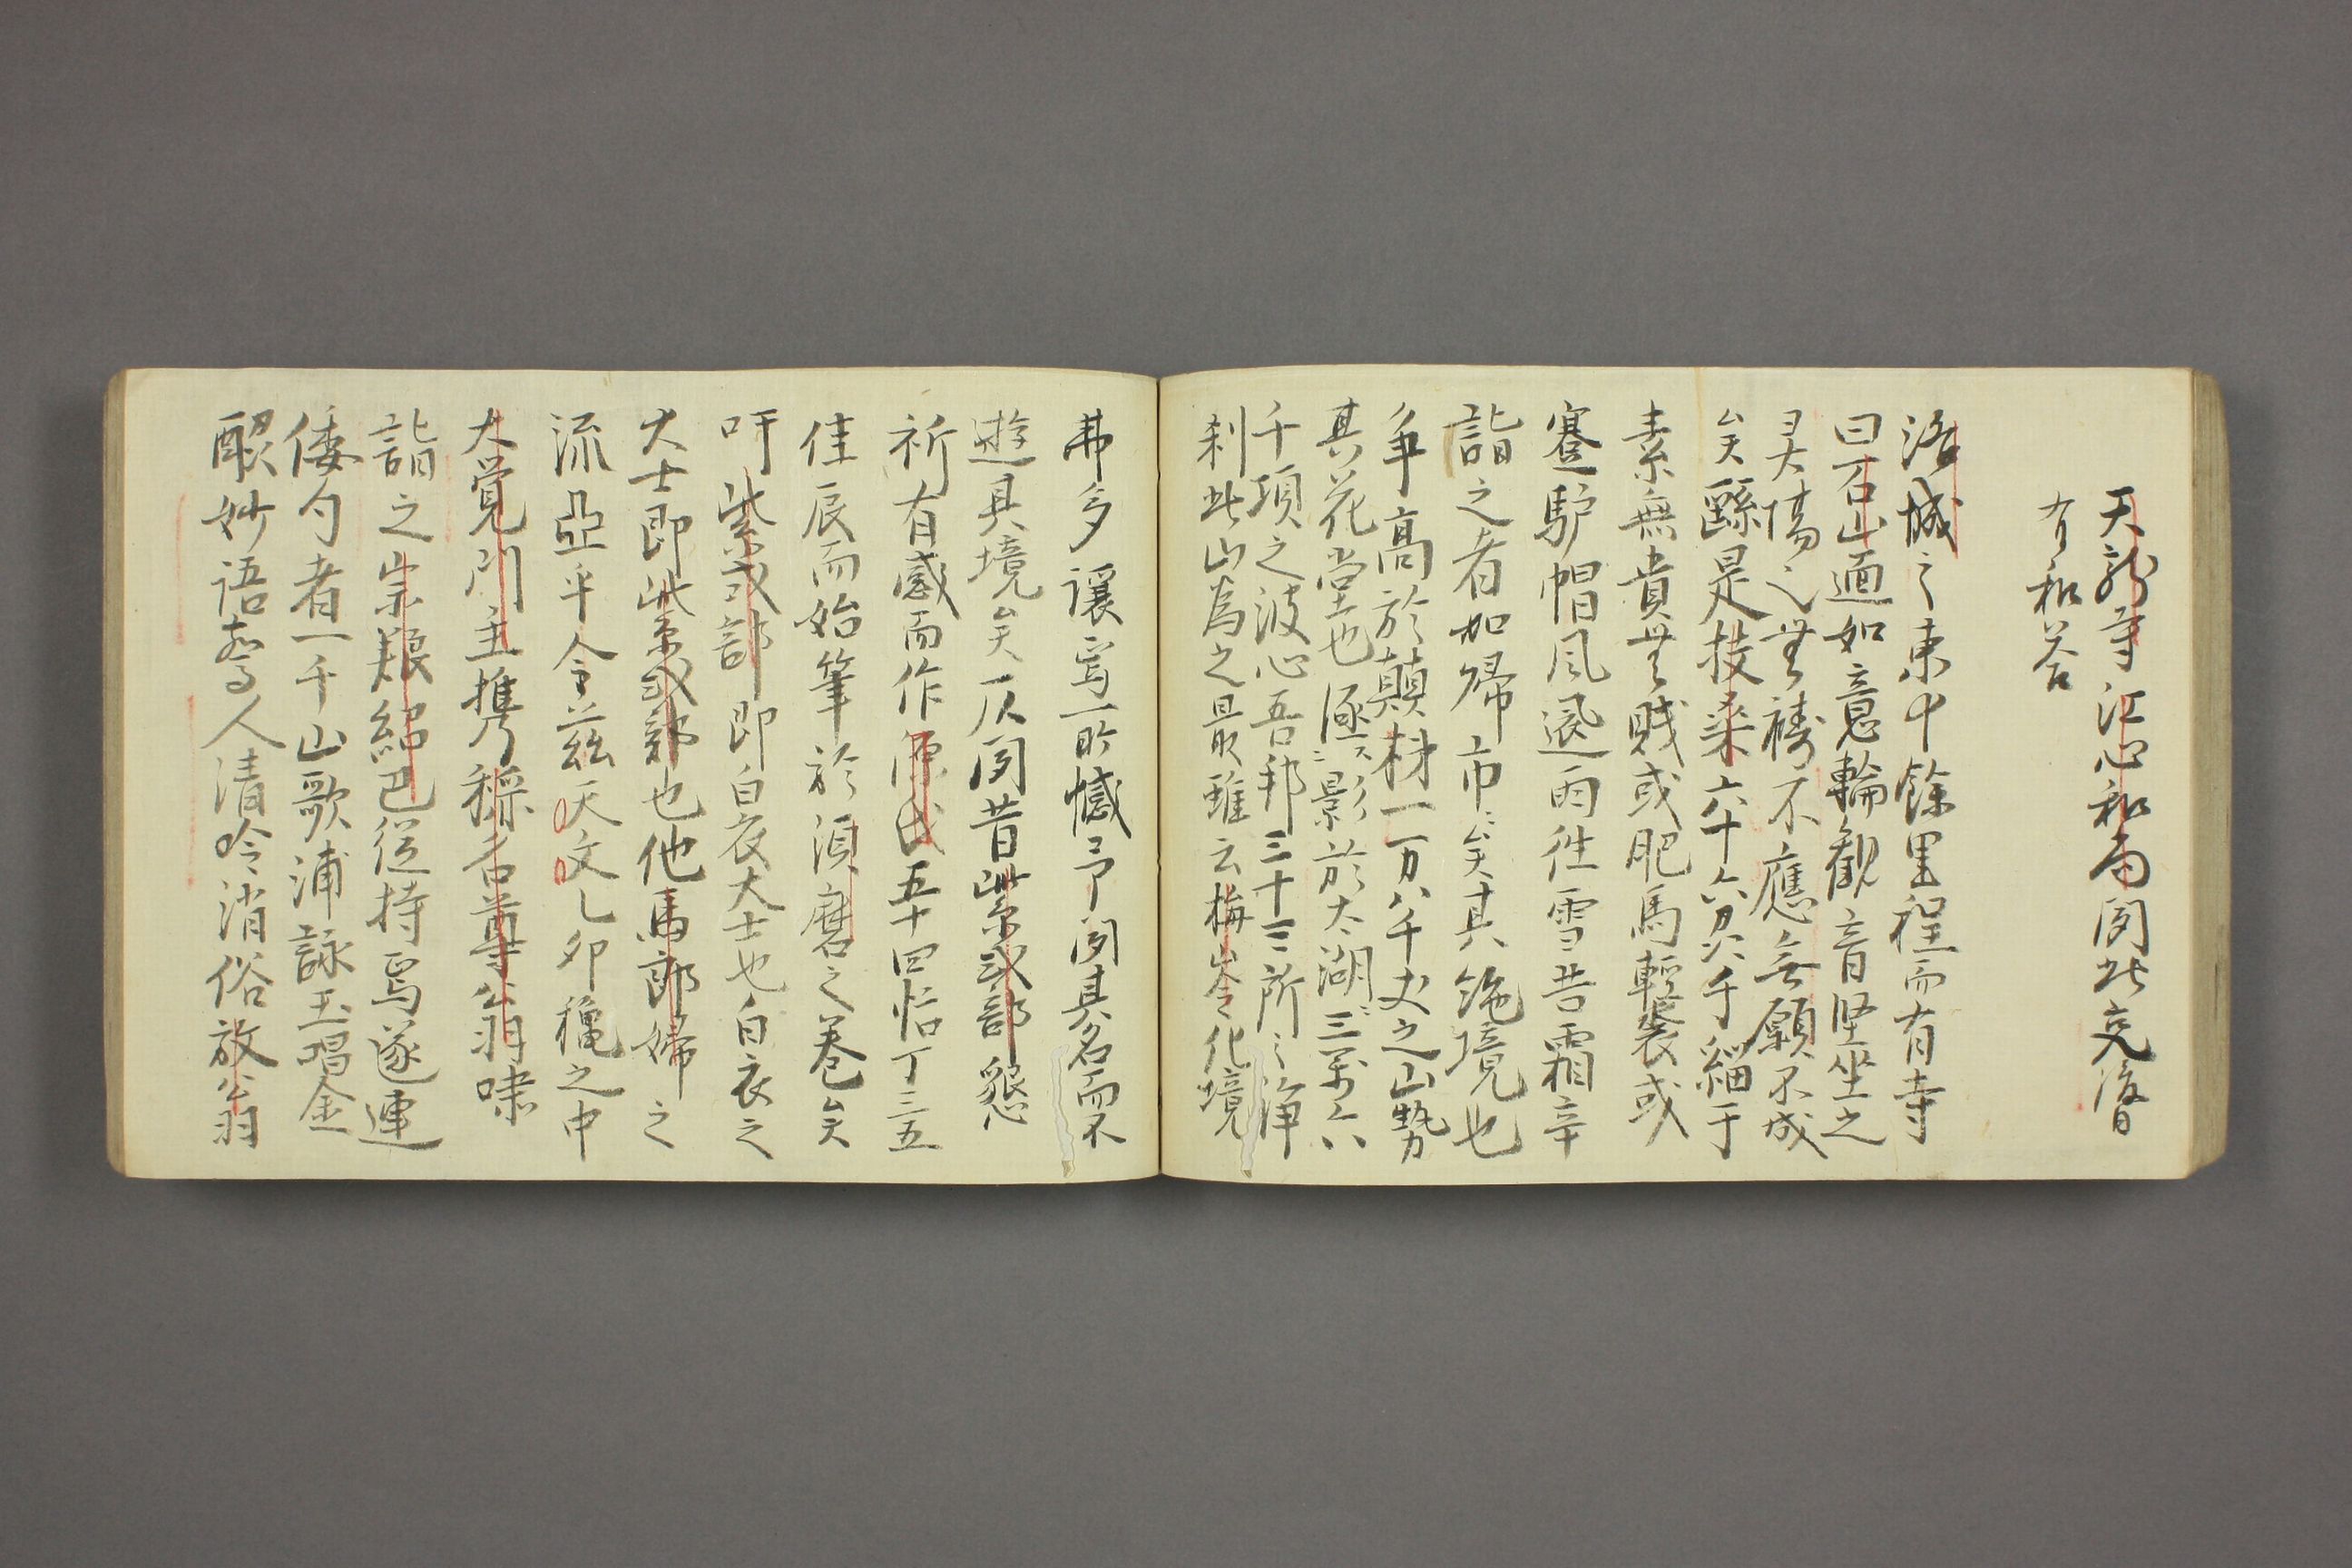 天龍寺江心和尚聞此克復
有和答
洛城之東十餘里程而有寺
曰石山廼如意輪観音坐之
灵場也無祷不應無願不成
矣繇是扶桒六十六刕于緇于
素無貴無賎或肥馬軽裘或
蹇馿帽風邀雨徃雪昔霜辛
詣之者如歸市矣其絶境也
争高於顛株一万八千丈之山勢
其花堂也涵影於太湖三万六
千頃之波心吾邦三十三所之浄
刹此山為之最雖云梅岺化境
弗多讓焉所憾予聞其名而不
遊其境矣仄聞昔紫式部懇
祈有感而作源氏五十四帖丁三五
佳辰而始筆於須磨之巻矣
吁紫式部即白衣大士也白衣之
大士即紫式部也他馬郎婦之
流亞乎今茲天文乙卯穐之中
大覚門主携稱名尊翁嘨
詣之宗頽紹巴従持焉遂連
倭句者一千山歌浦詠玉唱金
酘妙語驚人清吟消俗放翁